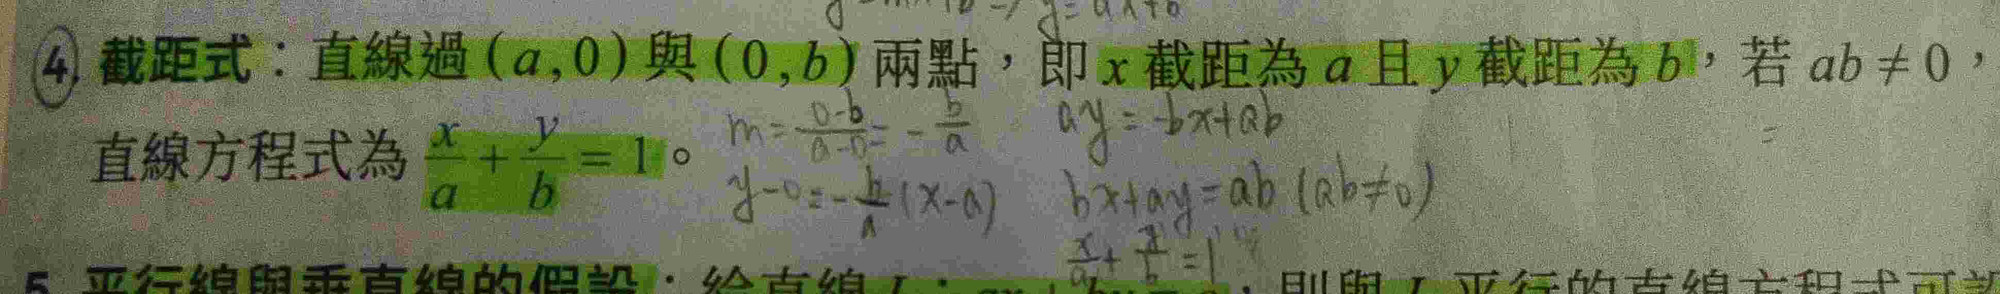 y=mx+b → y=ax+b
④ 截距式：直線過(a,0)與(0,b)兩點，即x截距為a且y截距為b，若ab≠0，
直線方程式為 x/a + y/b = 1。
m = (0-b)/(a-0) = -b/a
y-0=-b/a(x-a)
ay=-bx+ab
bx+ay=ab (ab≠0)
x/a + y/b = 1
5. 平行線與垂直線的假設：給直線L：ax+by=c，則與L平行的直線方程式可設